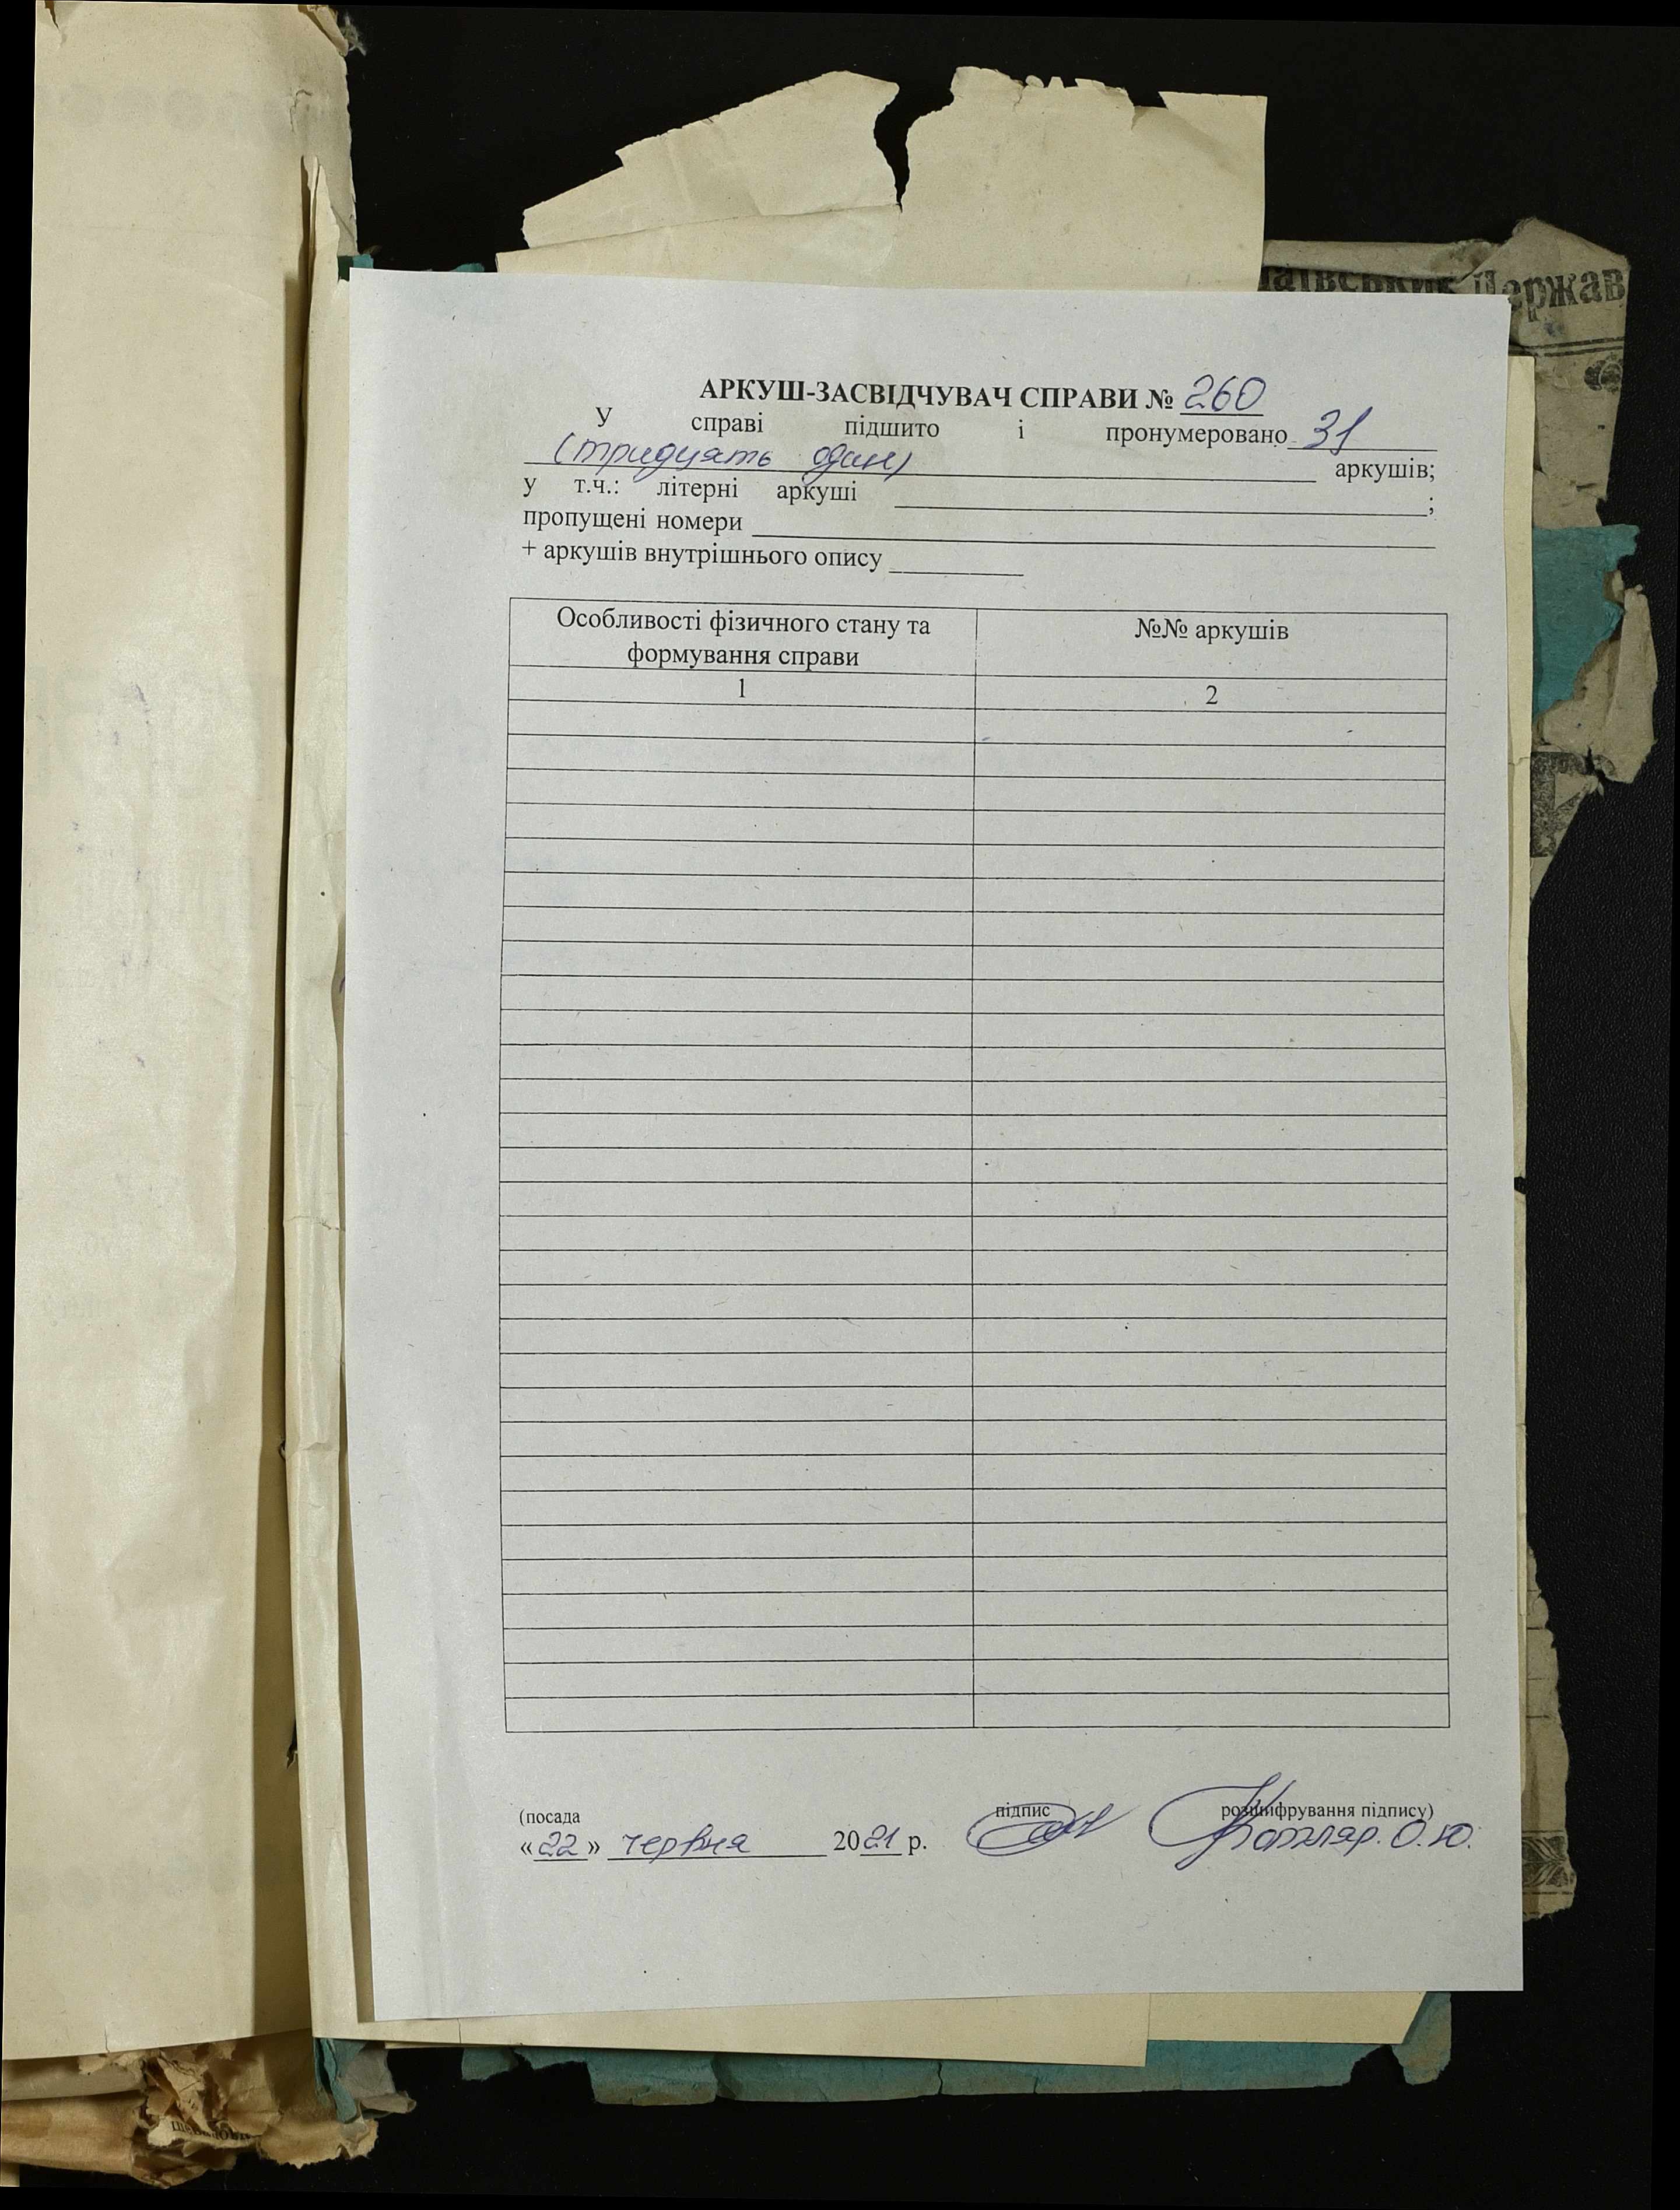 Держав
АРКУШ-ЗАСВІДЧУВАЧ СПРАВИ № 260
У справі підшито і пронумеровано 31
(тридцять один) аркушів;
у т.ч.: літерні аркуші ;
пропущені номери
+ аркушів внутрішнього опису
Особливості фізичного стану та формування справи
№№ аркушів
1
2
(посада підпис розшифрування підпису)
«22» червня 2021 р. Котляр. О.Ю.